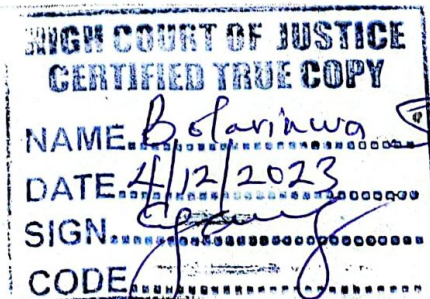 HIGH COURT OF JUSTICE
CERTIFIED TRUE COPY
NAME Bolarinwa
DATE 4/12/2023
SIGN
CODE